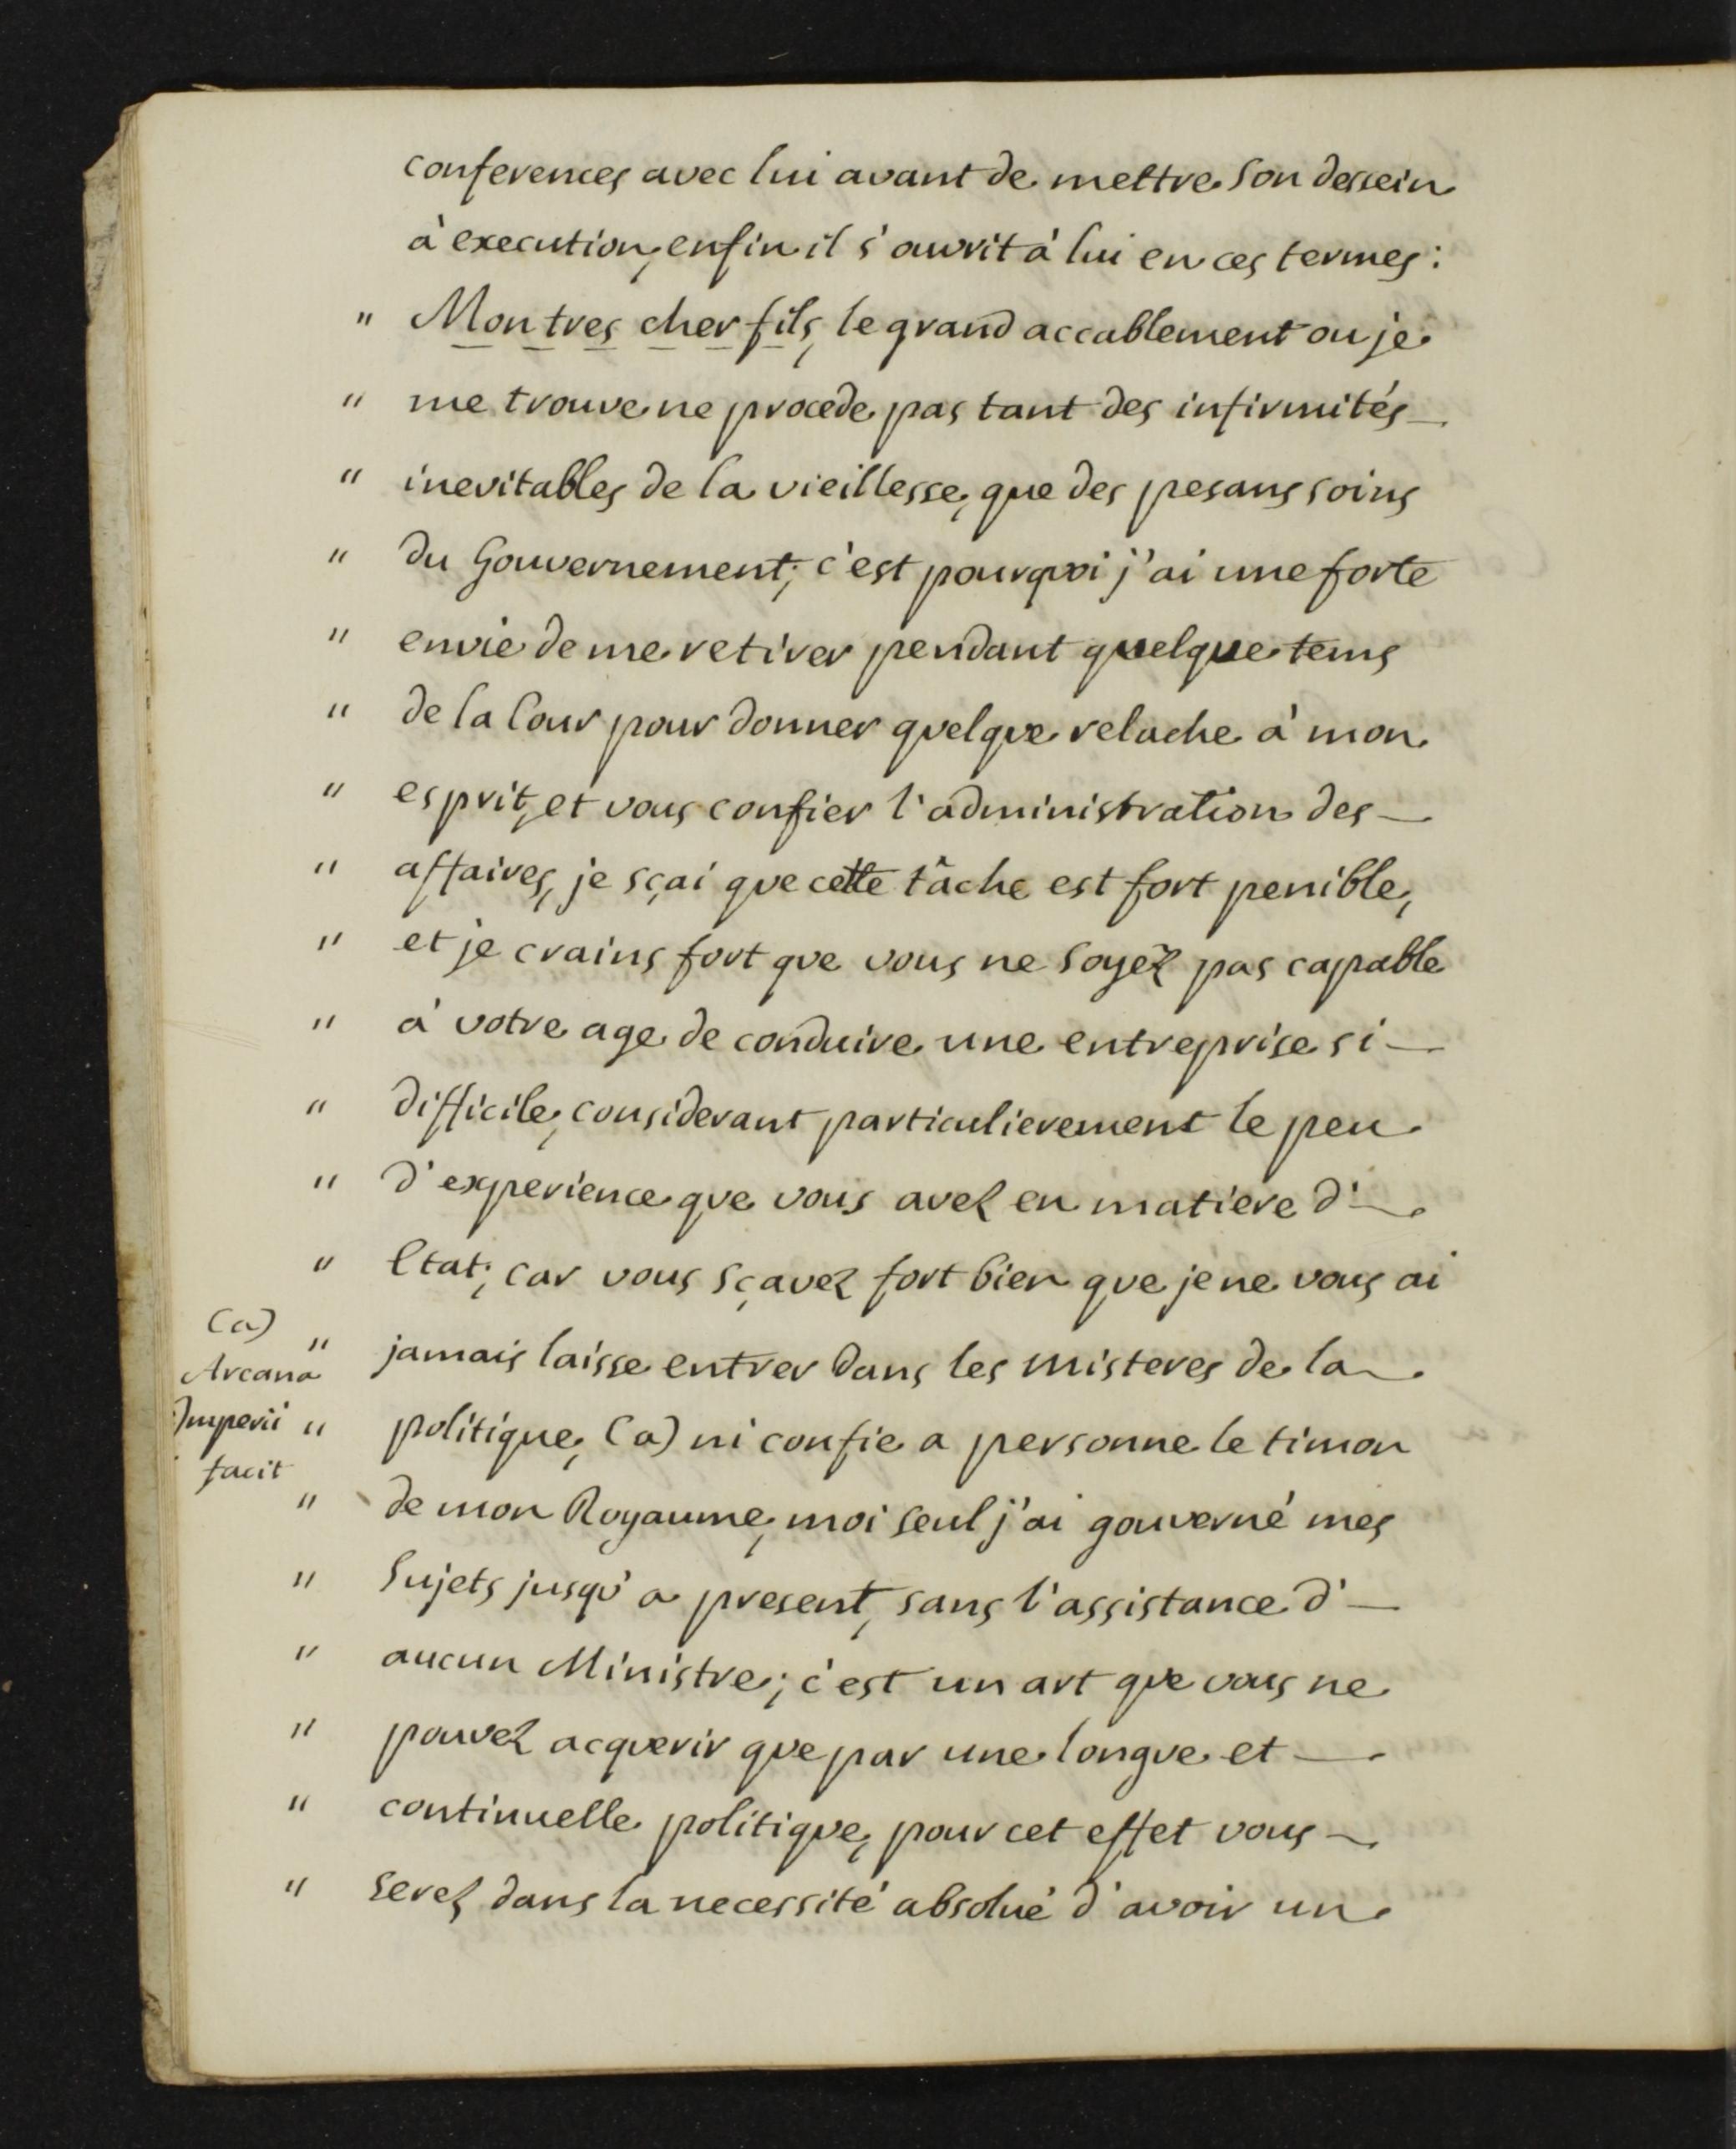 conferences avec lui avant de mettre son dessein
à execution, enfin il s'ouvrit à lui en ces termes:
" Mon tres cher fils, le grand accablement ou je
" me trouve ne procede pas tant des infirmités —
" inevitables de la vieillesse, que des pesans soins
" du Gouvernement; c'est pourquoi j'ai une forte
" envie de me retirer pendant quelque tems
" de la Cour pour donner quelque relache à mon
" esprit, et vous confier l'administration des —
" affaires, je sçai que cette tâche est fort penible,
" et je crains fort que vous ne soyez pas capable
" à votre age de conduire une entreprise si —
" difficile, considerant particulierement le peu
" d'experience que vous avez en matiere d' —
" Etat; car vous sçavez fort bien que je ne vous ai
" jamais laisse entrer dans les misteres de la
" politique, (a) ni confie a personne le timon
" de mon Royaume, moi seul j'ai gouverné mes
" Sujets jusqu'a present, sans l'assistance d' —
" aucun Ministre; c'est un art que vous ne
" pouvez acquerir que par une longue et —
" continuelle politique, pour cet effet vous —
" serez dans la necessité absolué d'avoir un
(a)
Arcana
Imperii
facit